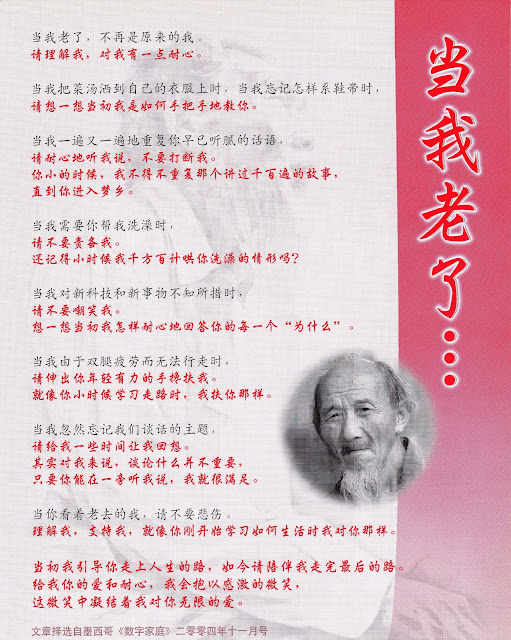 当我老了…
当我老了，不再是原来的我。
请理解我，对我有一点耐心。
当我把菜汤洒到自己的衣服上时，当我忘记怎样系鞋带时，
请想一想当初我是如何手把手地教你。
当我一遍又一遍地重复你早已听腻的话语，
请耐心地听我说，不要打断我。
你小的时候，我不得不重复那个讲过千百遍的故事，
直到你进入梦乡。
当我需要你帮我洗澡时，
请不要责备我。
还记得小时候我千方百计哄你洗澡的情形吗？
当我对新科技和新事物不知所措时，
请不要嘲笑我。
想一想当初我怎样耐心地回答你的每一个“为什么”。
当我由于双腿疲劳而无法行走时，
请伸出你年轻有力的手搀扶我。
就像你小时候学习走路时，我扶你那样。
当我忽然忘记我们谈话的主题，
请给我一些时间让我回想。
其实对我来说，谈论什么并不重要，
只要你能在一旁听我说，我就很满足。
当你看着老去的我，请不要悲伤。
理解我，支持我，就像你刚开始学习如何生活时我对你那样。
当初我引导你走上人生的路，如今请陪伴我走完最后的路。
给我你的爱和耐心，我会抱以感激的微笑，
这微笑中凝结着我对你无限的爱。
文章择选自墨西哥《数字家庭》二零零四年十一月号